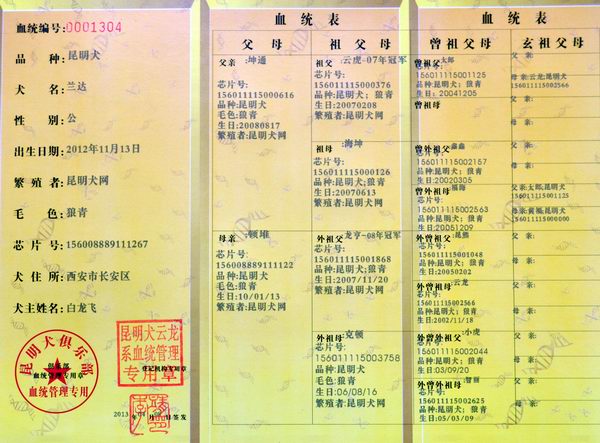 血统编号:0001304
品 种:昆明犬
犬 名:兰达
性 别:公
出生日期:2012年11月13日
繁殖者:昆明犬网
毛 色:狼青
芯片号:156008889111267
犬住所:西安市长安区
犬主姓名:白龙飞
昆明犬俱乐部
血统管理专用章
血统管理专用
昆明犬云龙
系血统管理
专用章
登记机构专用章
签发
血统表
父母
祖父母
父亲:坤通
芯片号:
156011115000616
品种:昆明犬
毛色:狼青
生日:20080817
繁殖者:昆明犬网
母亲:顿堆
芯片号:
156008889111122
品种:昆明犬
毛色:狼青
生日:10/01/13
繁殖者:昆明犬网
祖父:云虎-07年冠军
芯片号:
156011115000376
品种:昆明犬;狼青
生日:20070208
繁殖者:昆明犬网
祖母:海坤
芯片号:
156011115000126
品种:昆明犬;狼青
生日:20070613
繁殖者:昆明犬网
外祖父:龙亨-08年冠军
芯片号:
156011115001868
品种:昆明犬;狼青
生日:2007/11/20
繁殖者:昆明犬网
外祖母:克顿
芯片号:
156011115003758
品种:昆明犬
毛色:狼青
生日:06/08/16
繁殖者:昆明犬网
血统表
曾祖父母
玄祖父母
曾祖父:太郎
芯片号:
156011115001125
品种:昆明犬;狼青
生日:20041205
曾祖母
曾外祖父:鑫鑫
芯片号:
156011115002157
品种:昆明犬;狼青
生日:20020305
曾外祖母:福海
芯片号:
156011115002563
品种:昆明犬;狼青
生日:20051209
外曾祖父:昆熊
芯片号:
156011115001048
品种:昆明犬;狼青
生日:20050202
外曾祖母:云龙
芯片号:
156011115002566
品种:昆明犬;狼青
生日:2002/11/18
外曾外祖父:小虎
芯片号:
156011115002044
品种:昆明犬;狼青
生日:03/09/20
外曾外祖母
芯片号:
156011115002625
品种:昆明犬;狼青
生日:05/03/09
父亲:
母亲:云龙;昆明犬
156011115002566
父亲:
母亲:
父亲:
母亲:
父亲:太郎;昆明犬
156011115001125
母亲:黄福;昆明犬
156011115000000
父亲:
母亲:
父亲:
母亲:
父亲:
母亲:
父亲:
母亲: